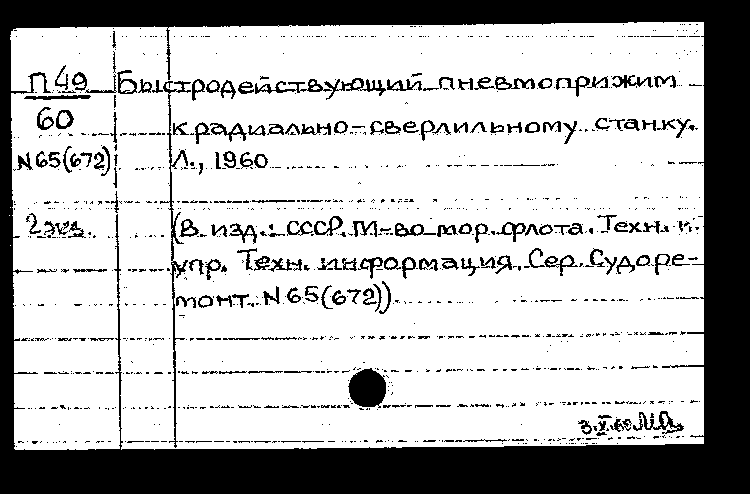 П 49 Быстродействующий пневмоприжим
60 к радиально-сверлильному станку.
N 65(672) Л., 1960
2 экз. (В изд.: СССР. М-во мор. флота. Техн. и.
упр. Техн. информация. Сер. Судоре-
монт. N 65(672)).
3.X.60